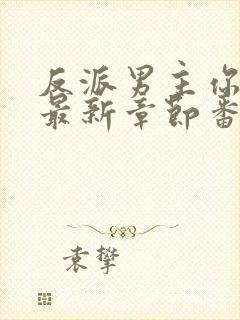 反派男主你
最新章节番
袁攀